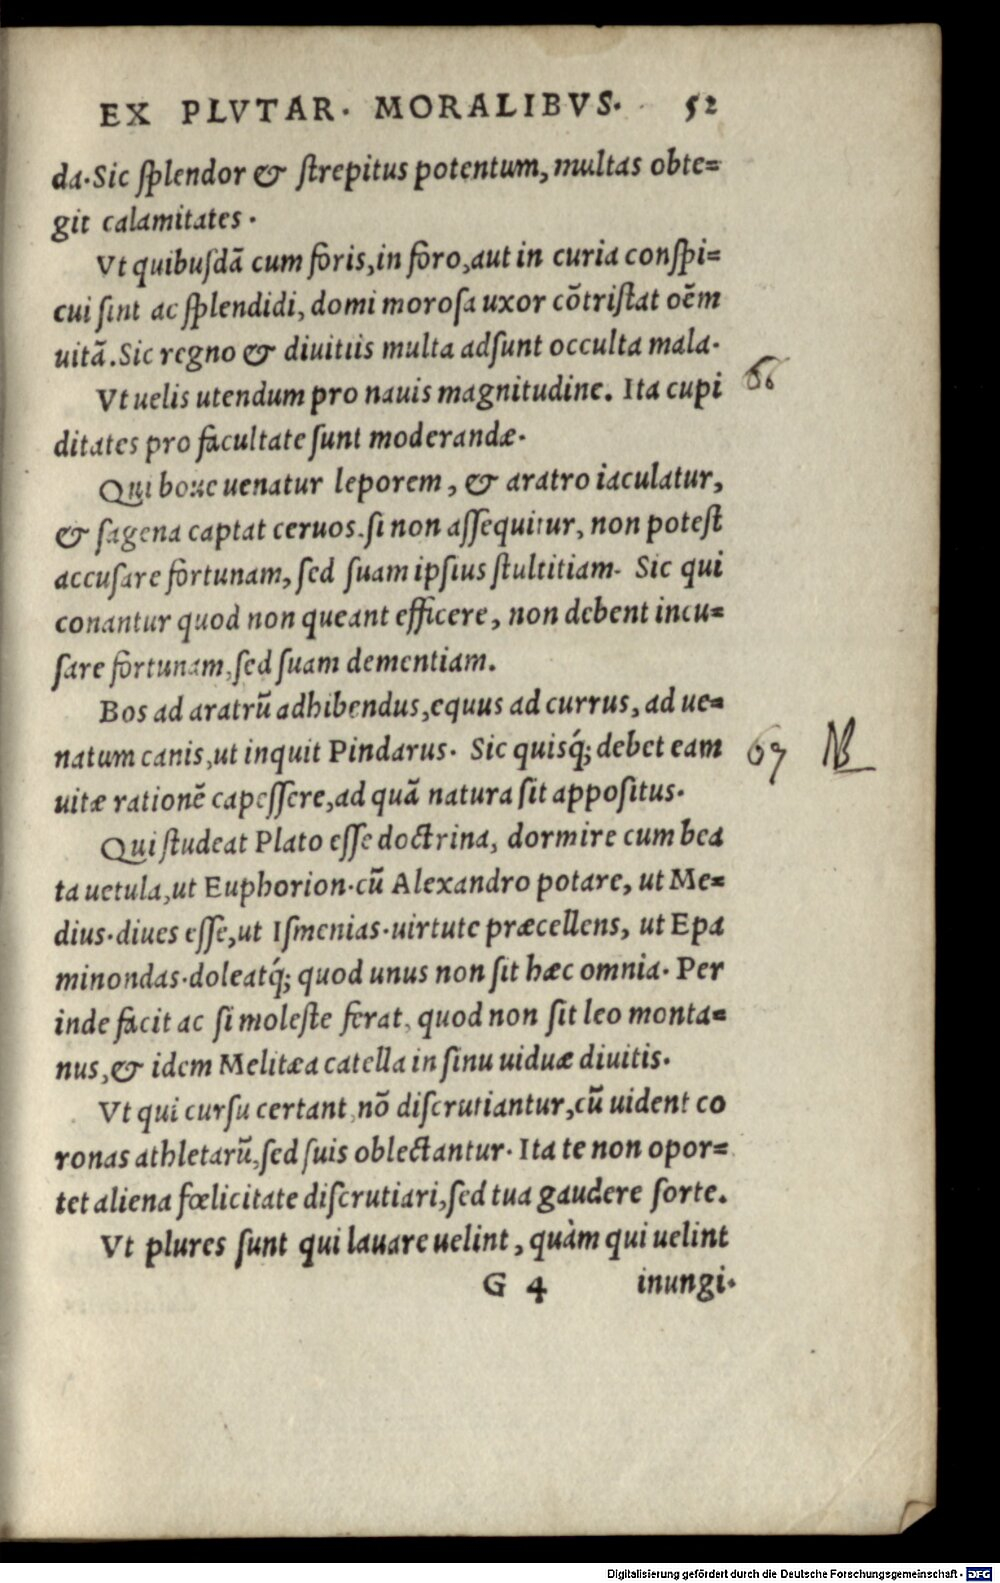 EX PLVTAR. MORALIBVS. 52
da. Sic ſplendor & ſtrepitus potentum, multas obte=
git calamitates.
Vt quibuſdã cum foris, in foro, aut in curia conſpi=
cui ſint ac ſplendidi, domi moroſa uxor cõtriſtat oẽm
uitã. Sic regno & diuitiis multa adſunt occulta mala.
Vt uelis utendum pro nauis magnitudine. Ita cupi 66
ditates pro facultate ſunt moderandæ.
Qui boue uenatur leporem, & aratro iaculatur,
& ſagena captat ceruos. ſi non aſſequitur, non poteſt
accuſare fortunam, ſed ſuam ipſius ſtultitiam. Sic qui
conantur quod non queant efficere, non debent incu=
ſare fortunam, ſed ſuam dementiam.
Bos ad aratrũ adhibendus, equus ad currus, ad ue=
natum canis, ut inquit Pindarus. Sic quisq́; debet eam 67 NB
uitæ rationẽ capeſſere, ad quã natura ſit appoſitus.
Qui ſtudeat Plato eſſe doctrina, dormire cum bea
ta uetula, ut Euphorion. cũ Alexandro potare, ut Me=
dius. diues eſſe, ut Iſmenias. uirtute præcellens, ut Epa
minondas. doleatq́; quod unus non ſit hæc omnia. Per
inde facit ac ſi moleſte ferat, quod non ſit leo monta=
nus, & idem Melitæa catella in ſinu uiduæ diuitis.
Vt qui curſu certant, nõ diſcrutiantur, cũ uident co
ronas athletarũ, ſed ſuis oblectantur. Ita te non opor=
tet aliena fœlicitate diſcrutiari, ſed tua gaudere ſorte.
Vt plures ſunt qui lauare uelint, quàm qui uelint
G 4 inungi.
Digitalisierung gefördert durch die Deutsche Forschungsgemeinschaft - DFG